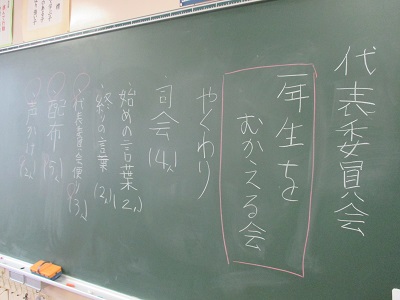 代表委員会
一年生を
むかえる会
やくわり
司会(4人)
始めの言葉(2人)
終りの言葉(2人)
○代表委員会便り(3人)
○配布(5人)
○声かけ(2人)